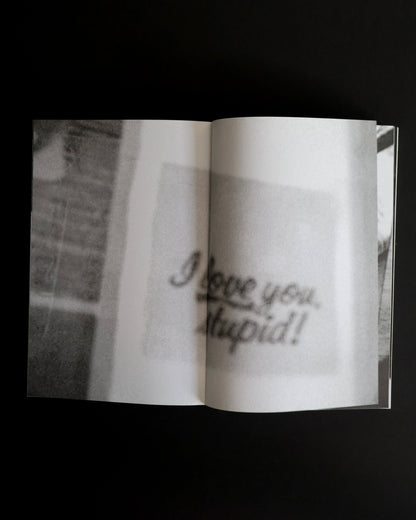 I love you,
stupid!